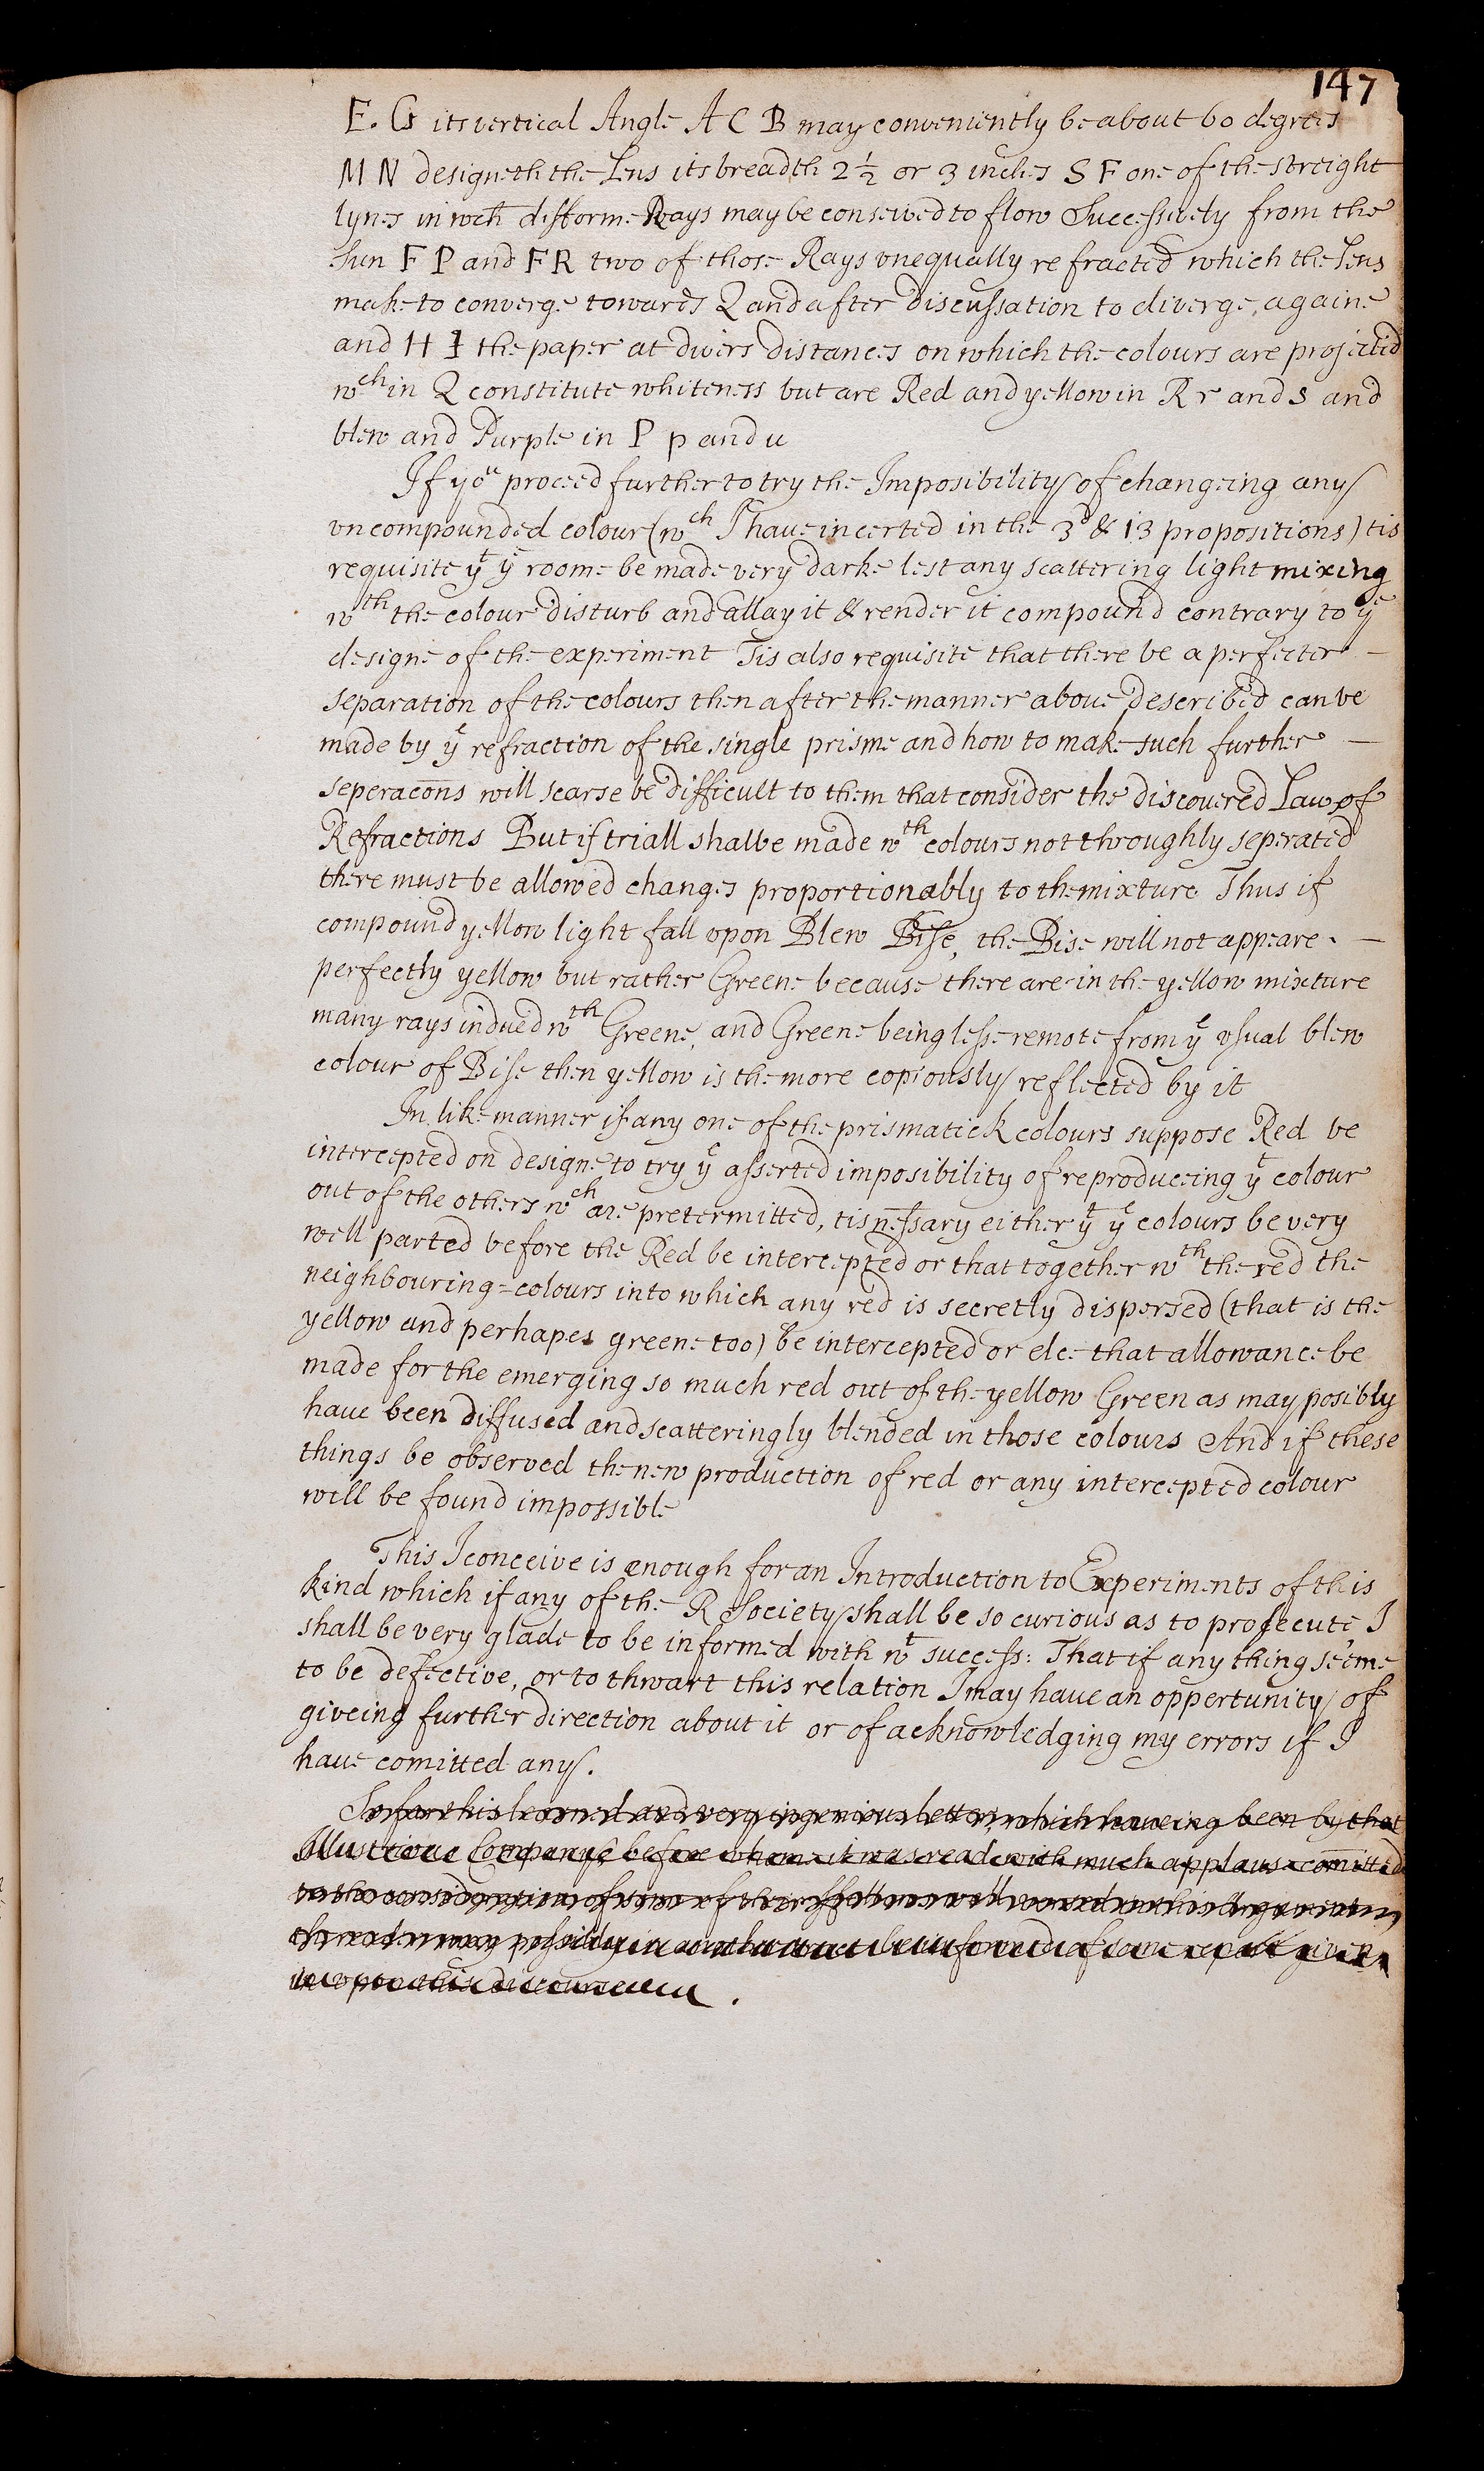 147
E. G its vertical Angle A C B may conveniently be about 60 degrees
M N designeth the Lens its breadth 2 1/2 or 3 inches S F one of the streight
lynes in wch difforme Rays may be conseived to flow Successively from the
Sun F P and F R two of those Rays vnequally refracted which the Lens
make to converge towards Q and after discussation to diverge againe
and H I the paper at divers distances on which the colours are projected
wch in Q constitute whiteness but are Red and yellow in R r and s and
blew and Purple in P p and u
If you proceed further to try the Imposibility of changeing any
vncompounded colour (wch I haue incerted in the 3d & 13 propositions) tis
requisite yt ye roome be made very darke lest any scattering light mixing
wth the colour disturb and allay it & render it compound contrary to ye
designe of the experiment Tis also requisite that there be a perfecter —
separation of the colours then after the manner aboue described can be
made by ye refraction of the single prisme and how to make such further —
seperacōns will scarse be difficult to them that consider the discovered Law of
Refractions But if triall shalbe made wth colours not throughly seperated
there must be allowed changes proportionably to the mixture Thus if
compound yellow light fall vpon Blew Bise, the Bise will not appeare. —
perfectly yellow but rather Greene because there are in the yellow mixture
many rays indued wth Greene, and Greene being lesse remote from ye vsual blew
colour of Bise then yellow is the more copiously reflected by it
In like manner if any one of the prismatick colours suppose Red be
intercepted on designe to try ye asserted imposibility of reproduceing yt colour
out of the others wch are pretermitted, tis nessary either yt ye colours be very
well parted before the Red be intercepted or that together wth the red the
neighbouring=colours into which any red is secretly dispersed (that is the
yellow and perhapes greene too) be intercepted or elce that allowance be
made for the emerging so much red out of the yellow Green as may posibly
haue been diffused and scatteringly blended in those colours And if these
things be observed the new production of red or any intercepted colour
will be found impossible
This I conceive is enough for an Introduction to Experiments of this
kind which if any of the R Society shall be so curious as to prosecute, I
shall be very glade to be informed with wt success: That if any thing seeme
to be defective, or to thwart this relation I may have an oppertunity of
giveing further direction about it or of acknowledging my errors if I
haue comitted any.
So far this learned and very ingenious letter, which haveing been by that
Illustrious Company before whom it was read with much applaus comitted